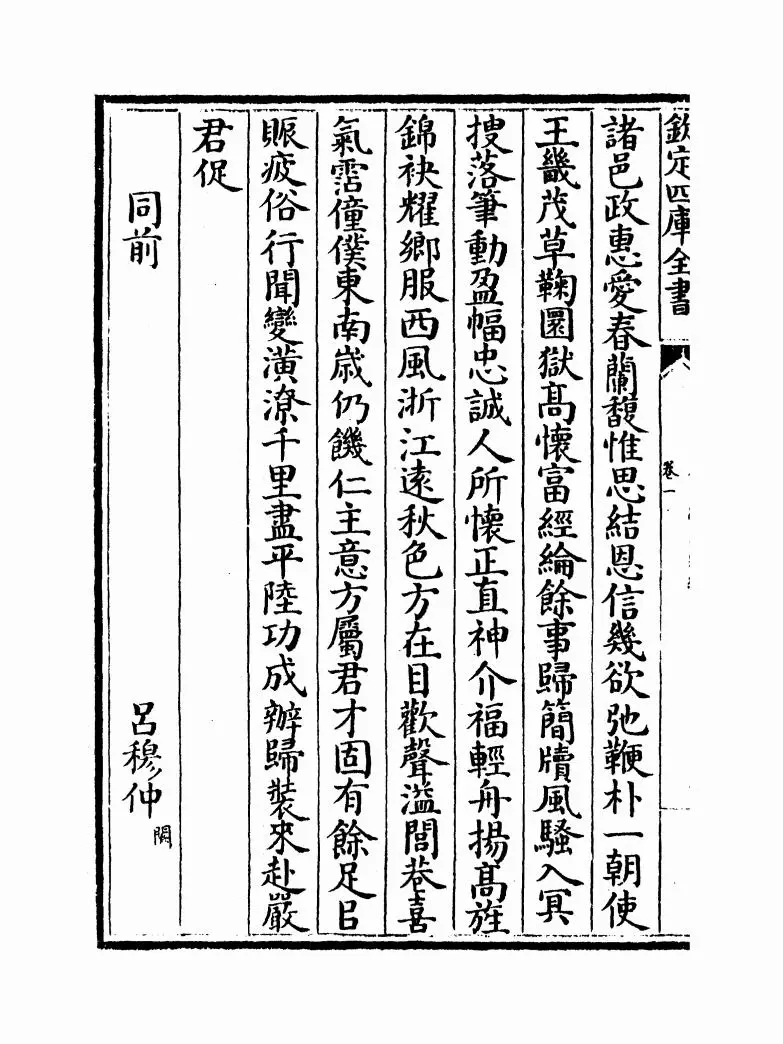 欽定四庫全書
卷一
諸邑政惠愛春蘭馥惟思結恩信幾欲弛鞭朴一朝使
王畿茂草鞠圜獄髙懷富經綸餘事歸簡牘風騷入冥
搜落筆動盈幅忠誠人所懷正直神介福輕舟揚髙旌
錦袂耀鄉服西風浙江遠秋色方在目歡聲溢閭巷喜
氣霑僮僕東南歲仍饑仁主意方屬君才固有餘足㠯
賑疲俗行聞變潢潦千里盡平陸功成辦歸裝來赴嚴
君促
同前
呂穆仲闕